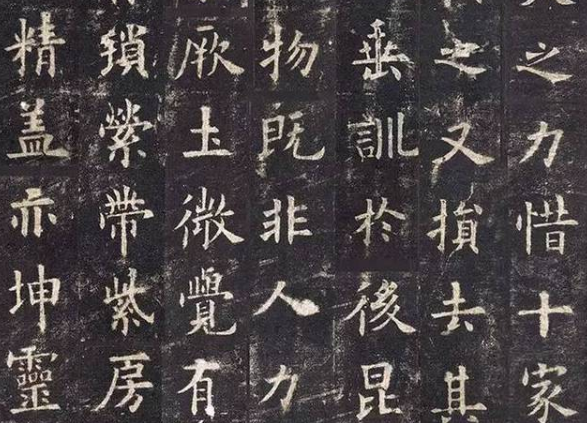 之力惜十家
之又損去其
垂訓於後昆
物既非人力
厥土微覺有
瑣縈帶紫房
精盖亦坤靈